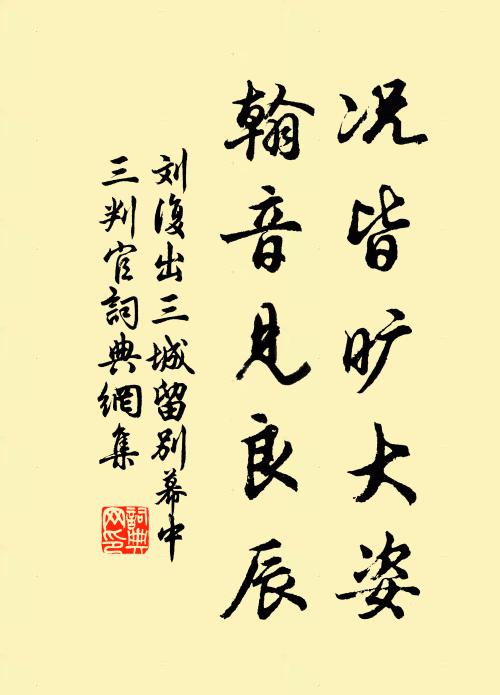 况皆旷大姿
翰音见良辰
刘复出三城留别幕中
三判官詞典網集
詞典网印